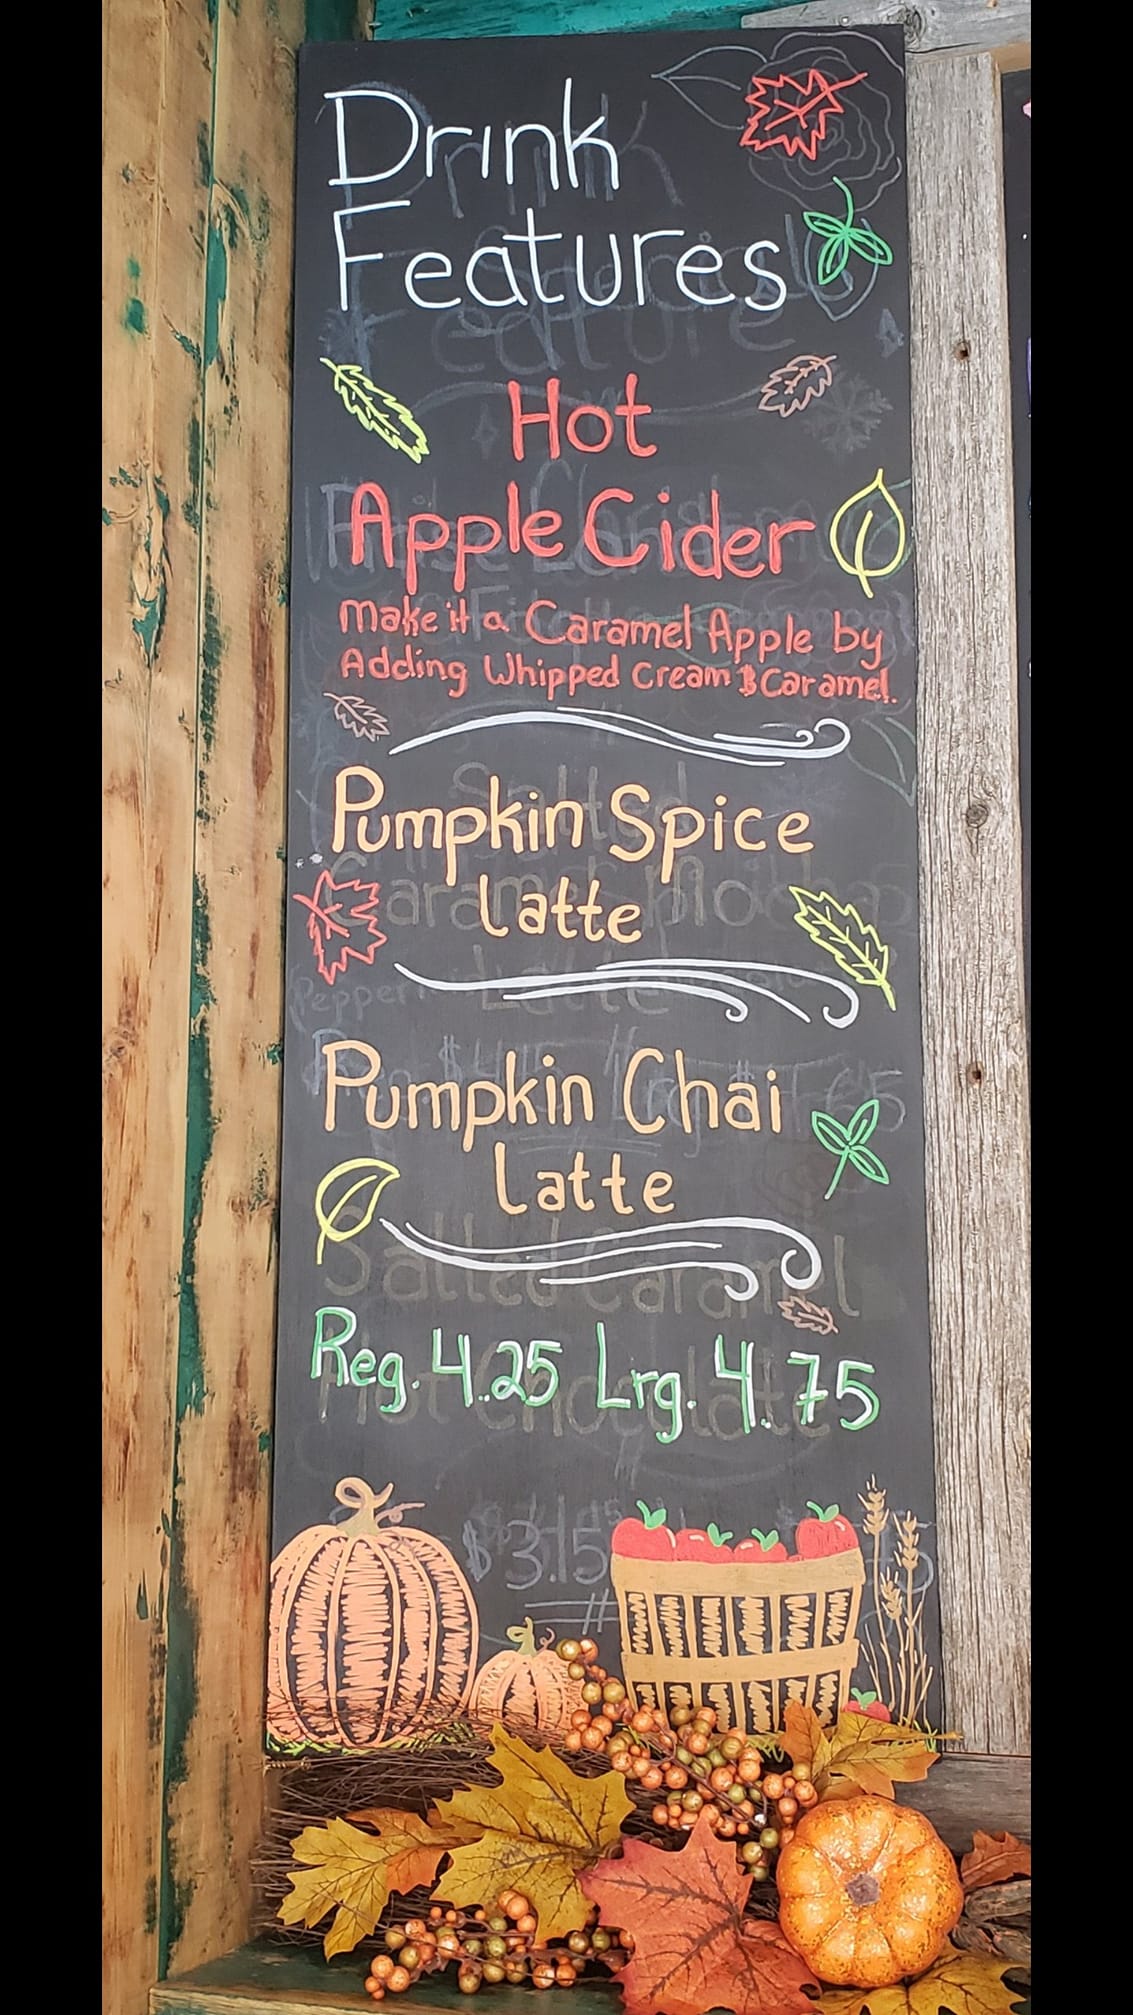 Drink
Features
Hot
Apple Cider
Make it a Caramel Apple by
Adding Whipped Cream & Caramel.
Pumpkin Spice
Latte
Pumpkin Chai
Latte
Salted Caramel
Reg. 4.25 Lrg. 4.75
Hot Chocolate
$3.15